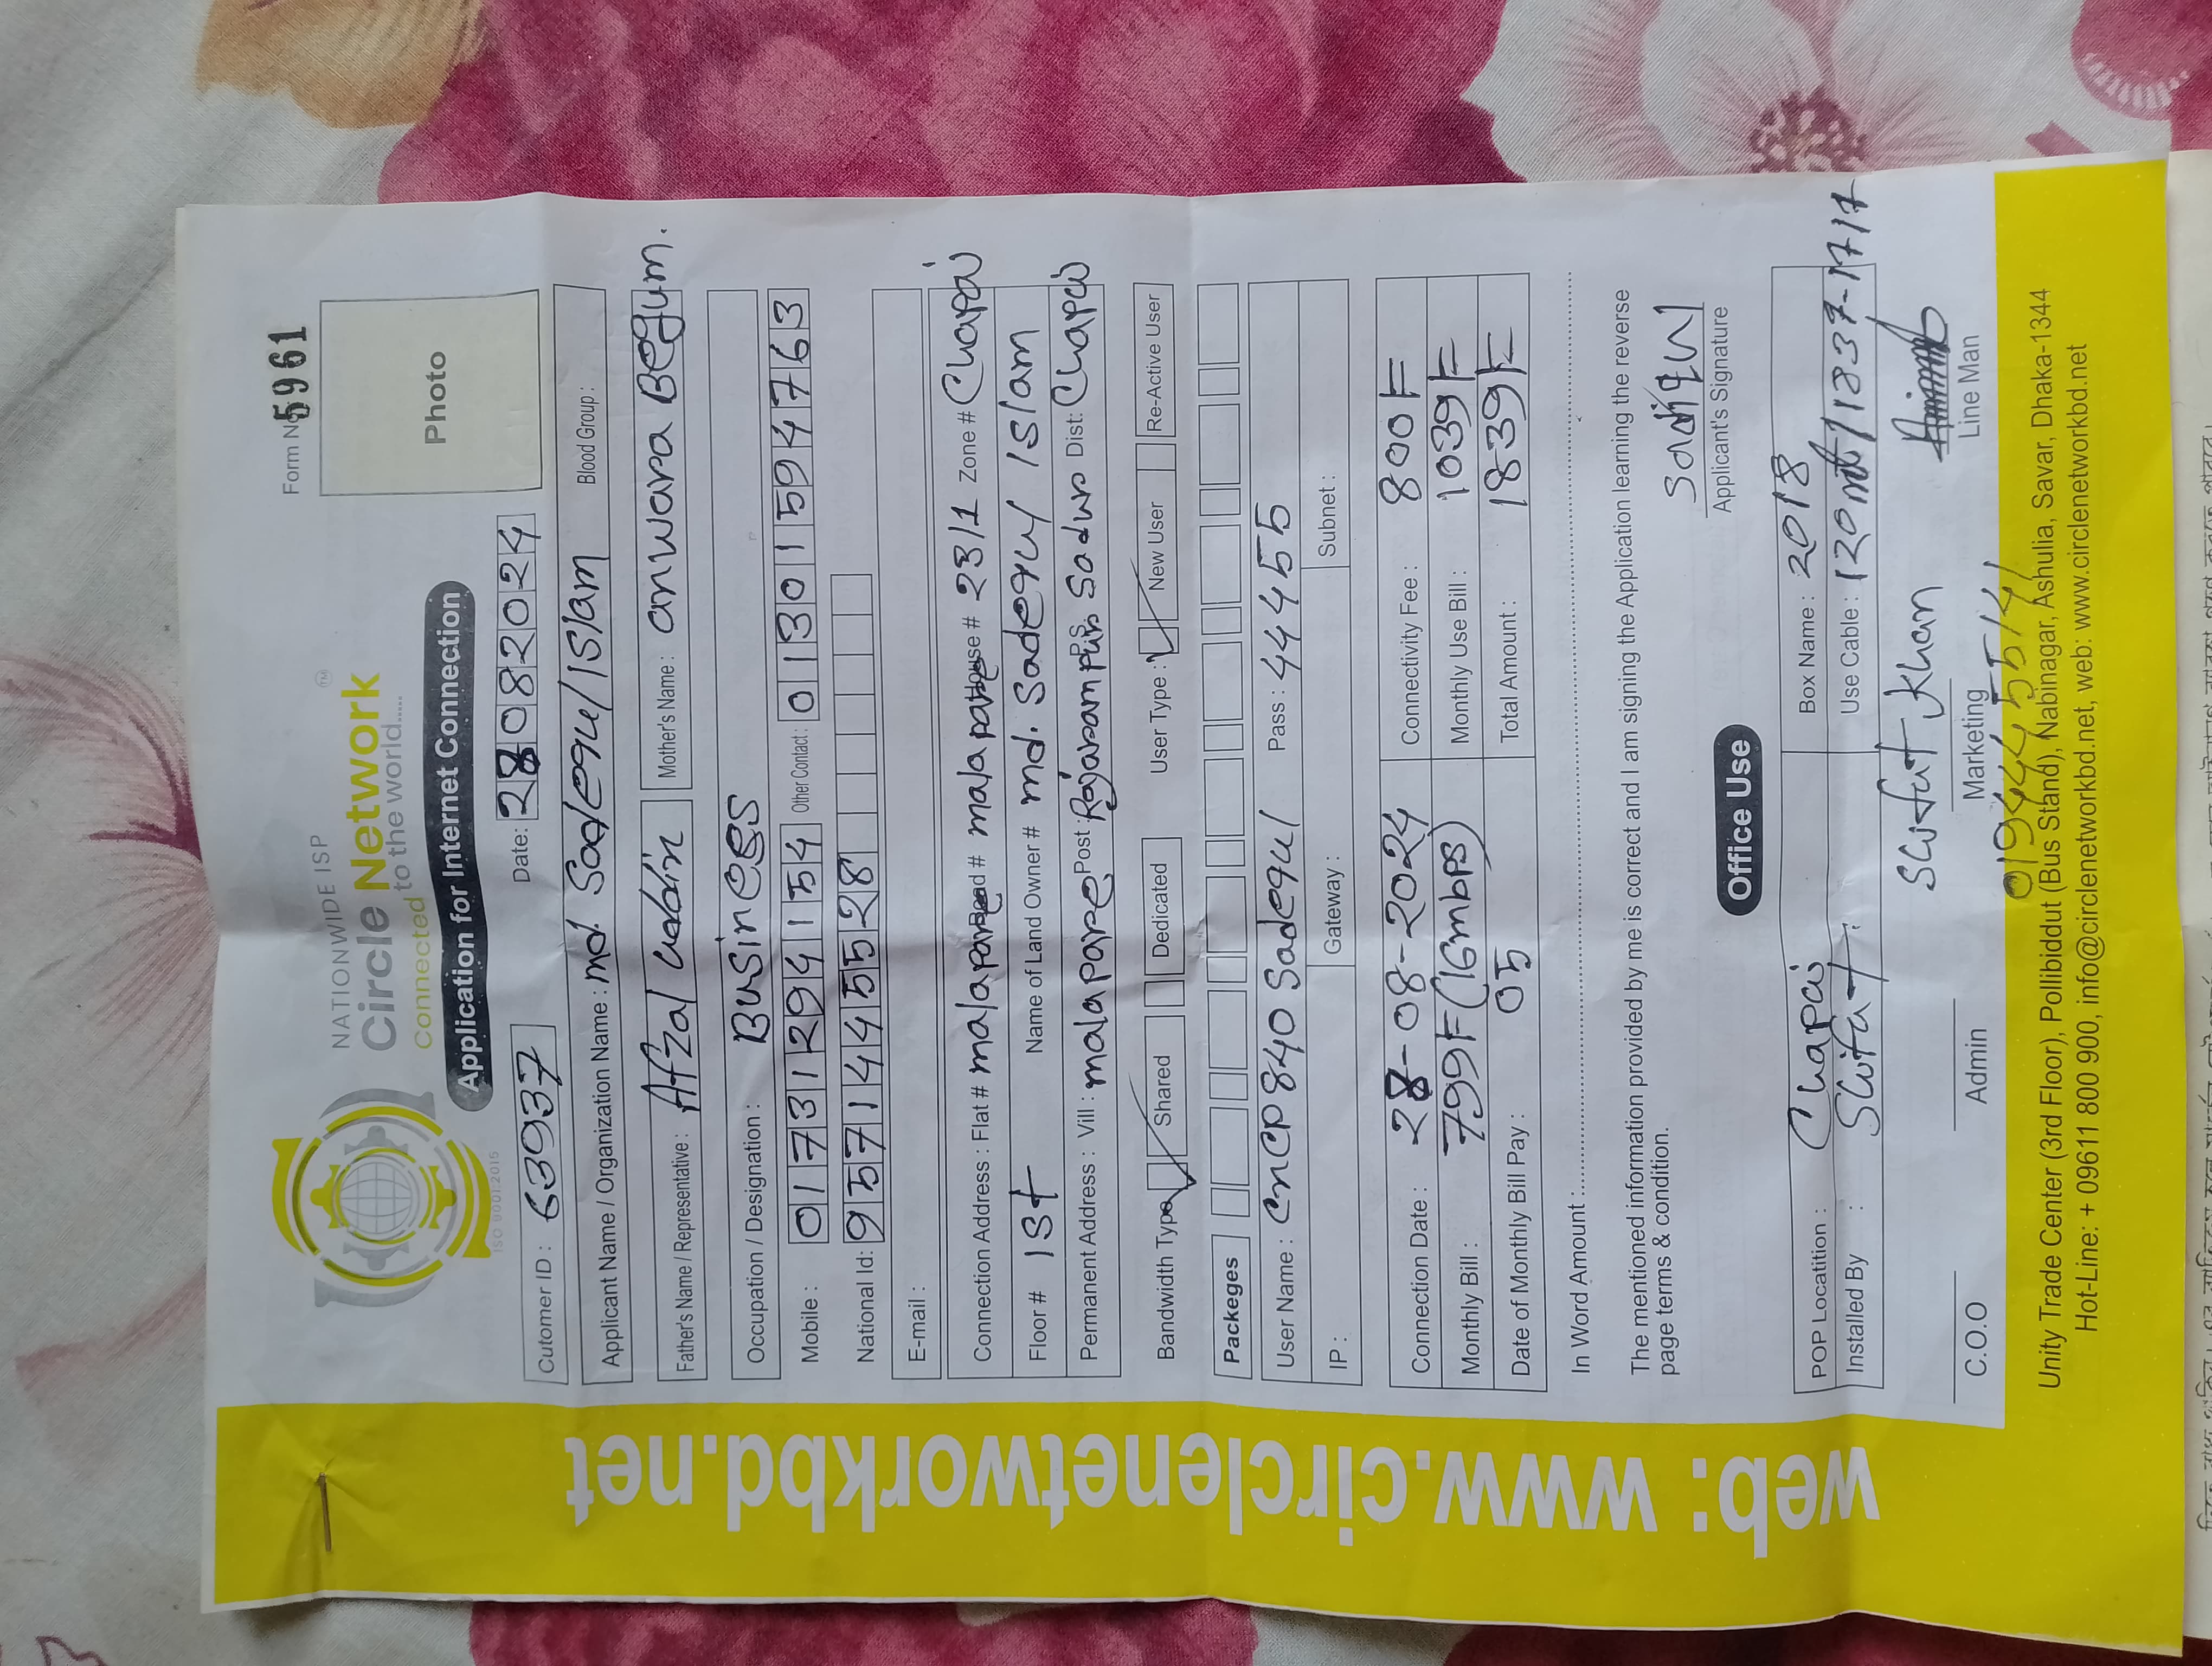 Form No 5961
NATIONWIDE ISP
Circle Network TM
Connected to the world.....
ISO 9001:2015
Application for Internet Connection
Photo
Cutomer ID : 63937 Date: 28082024
Applicant Name / Organization Name : md. Sadequl Islam Blood Group :
Father's Name / Representative : Afzal uddin Mother's Name : anwara Begum.
Occupation / Designation : Business
Mobile : 01731294154 Other Contact : 01301594763
National Id: 9571445528
E-mail :
Connection Address : Flat # malapara Road # malapara House # 23/1 Zone # Chapai
Floor # 1st Name of Land Owner # md. Sadequl Islam
Permanent Address : Vill : malapara Post : P.S Sadur Dist: Chapai
Bandwidth Type Shared Dedicated User Type : New User Re-Active User
Packeges
User Name : CNCP840Sadequl Pass : 44455
IP : Gateway : Subnet :
Connection Date : 28-08-2024 Connectivity Fee : 800/=
Monthly Bill : 799/= (16mbps) Monthly Use Bill : 1039/=
Date of Monthly Bill Pay : 05 Total Amount : 1839/=
In Word Amount :
The mentioned information provided by me is correct and I am signing the Application learning the reverse
page terms & condition.
Applicant's Signature
Office Use
POP Locatition : Chapai Box Name : 2018
Installed By : Sifat. Use Cable : 120m 1837-1717
Sifat Khan
C.O.O Admin Marketing Line Man
01944455141
Unity Trade Center (3rd Floor), Pollibiddut (Bus Stand), Nabinagar, Ashulia, Savar, Dhaka-1344
Hot-Line: + 09611 800 900, info@circlenetworkbd.net, web: www.circlenetworkbd.net
web: www.circlenetworkbd.net